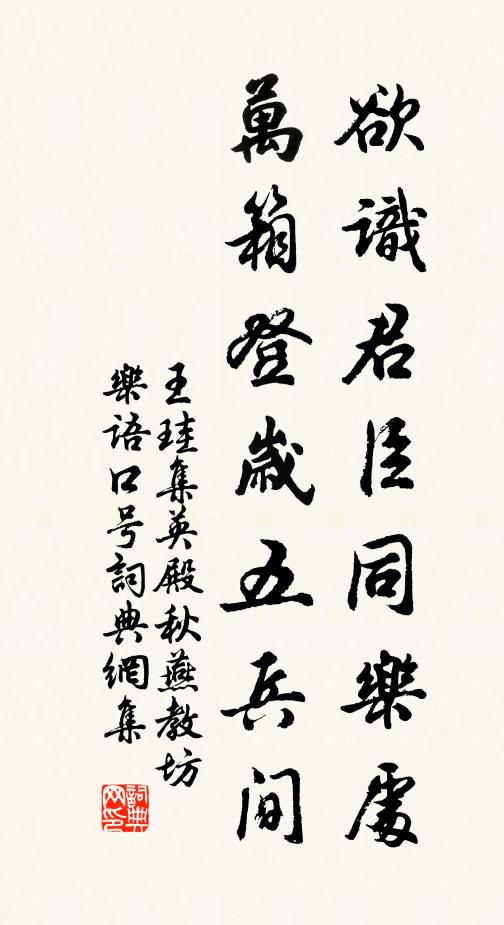 欲識君臣同樂處
萬箱登歲五兵間
王珪集英殿秋燕教坊
樂語口号詞典網集
詞典网印